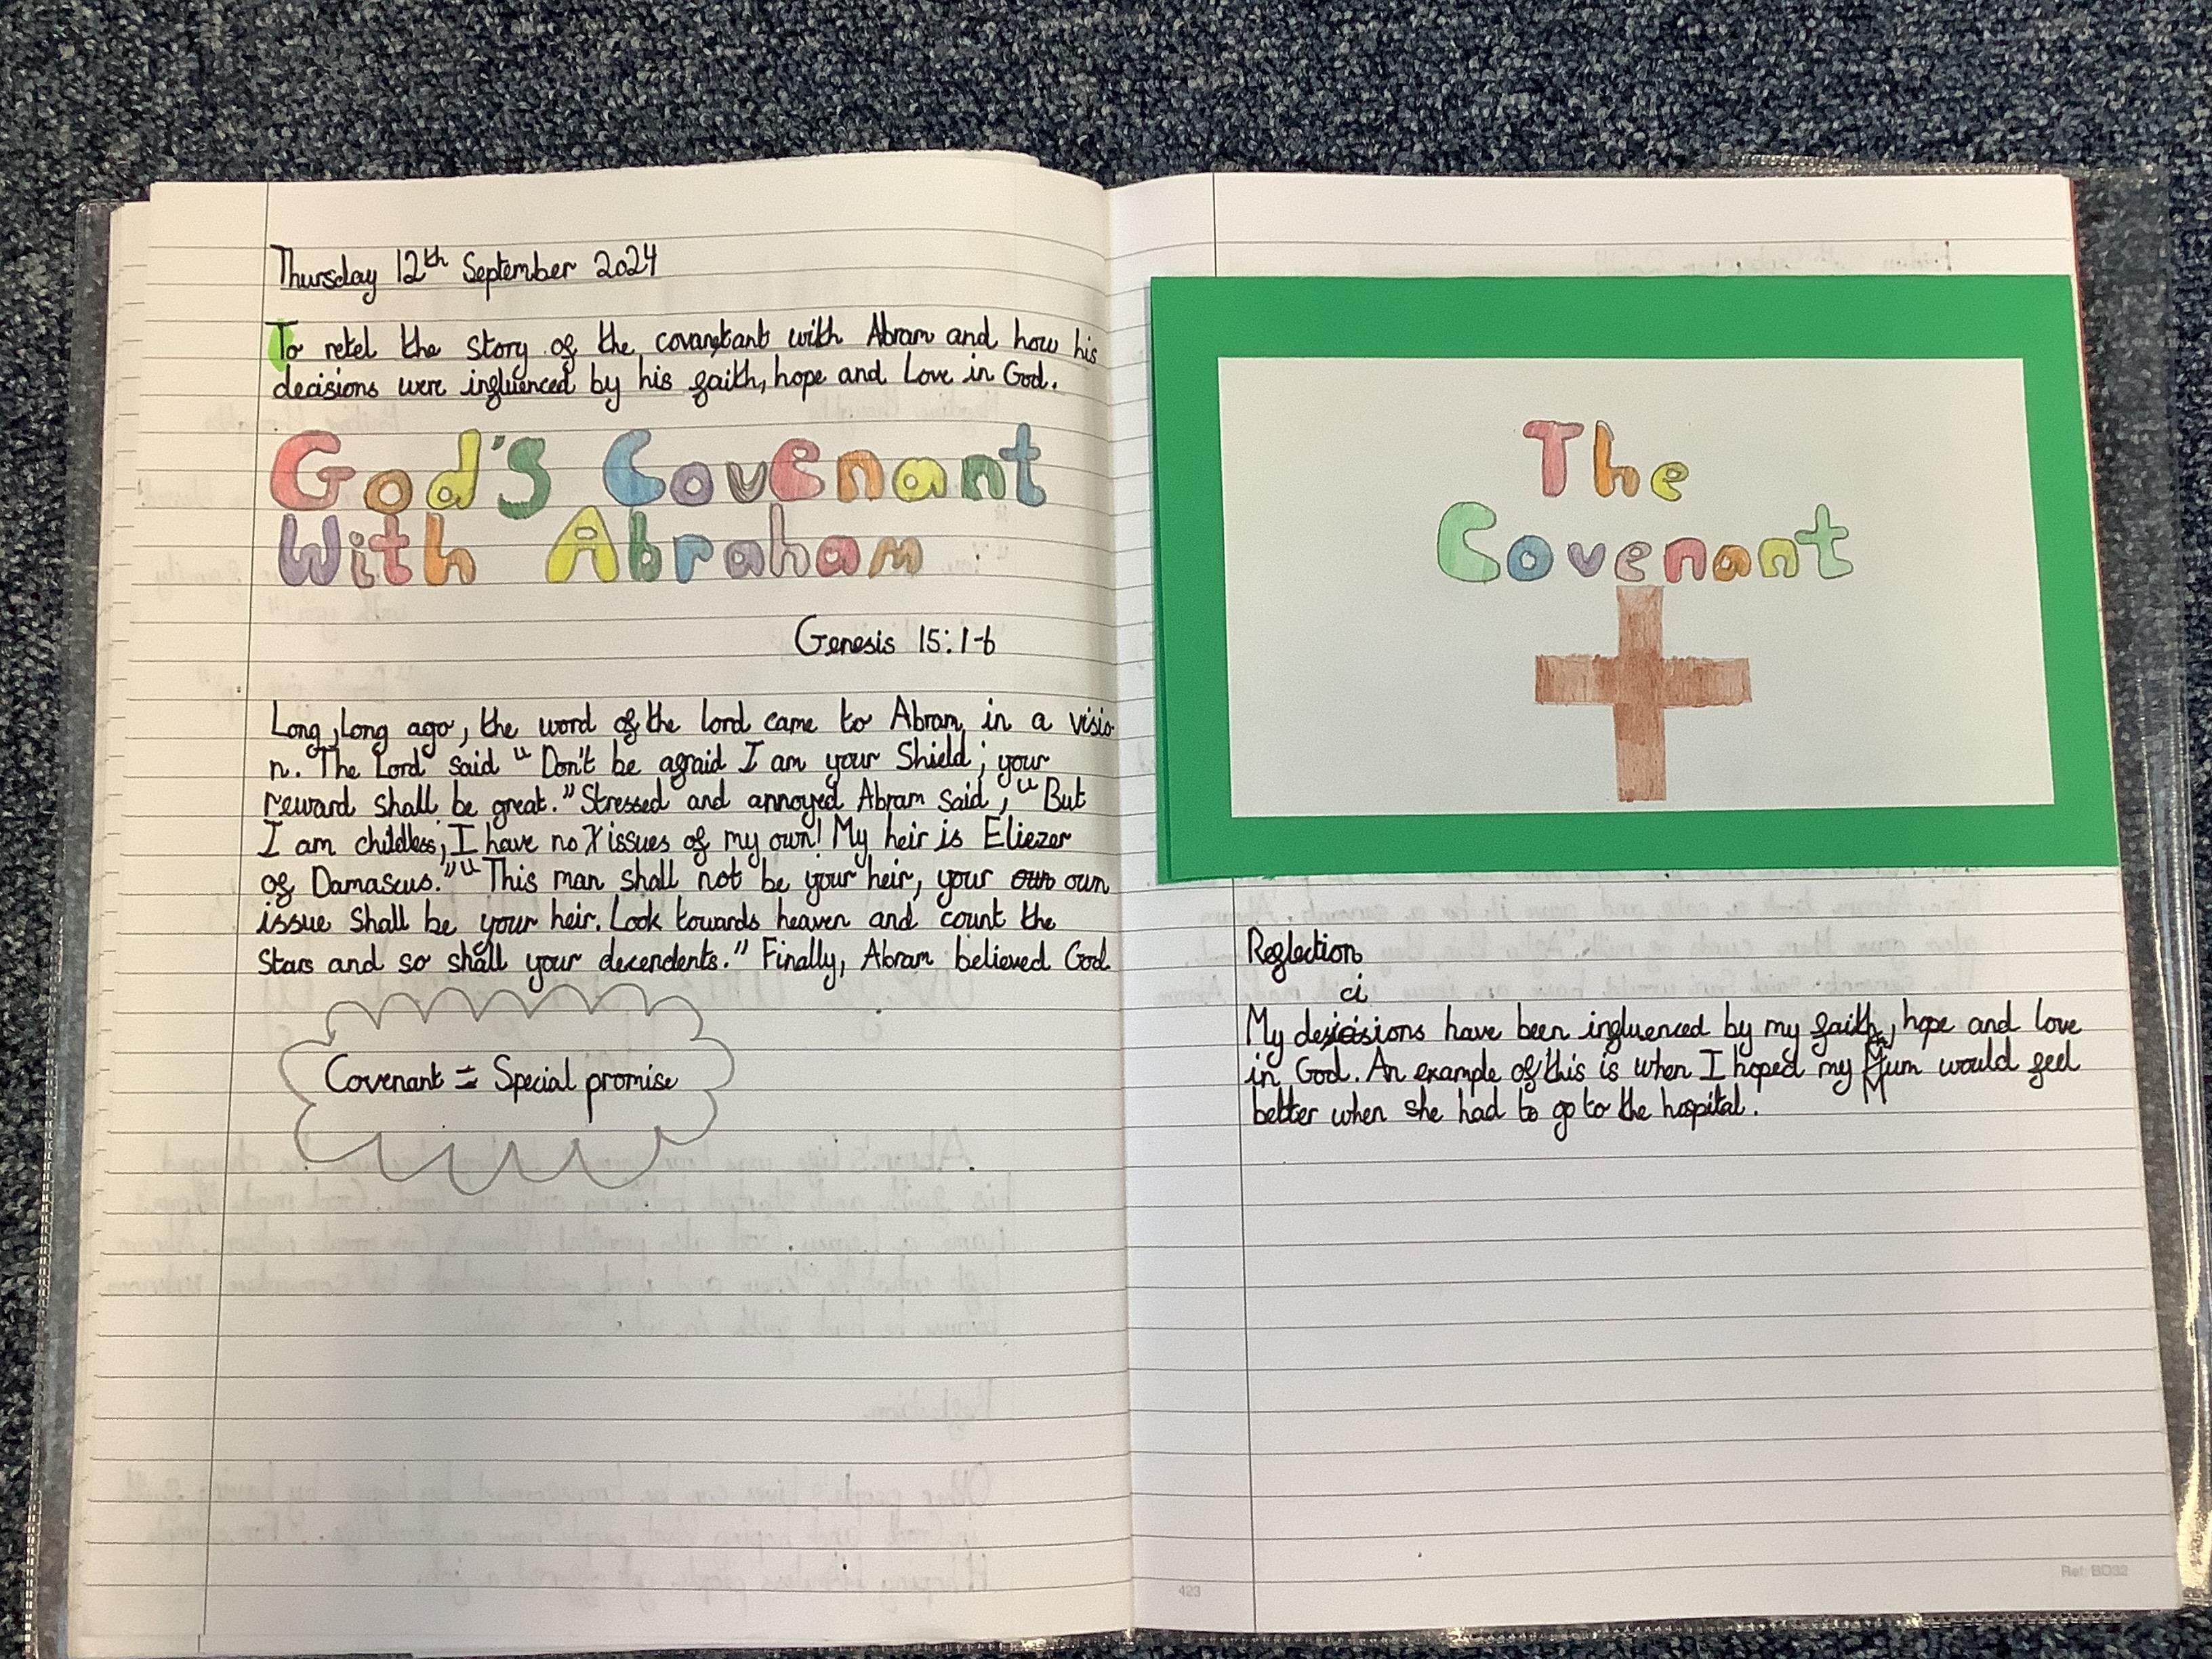 Thursday 12th September 2024
To retel the story of the covantant with Abram and how his
decisions were influenced by his faith, hope and Love in God.
God's Covenant
With Abraham
Genesis 15:1-6
Long, long ago, the word of the lord came to Abram in a visio
n. The Lord said “Don't be afraid I am your Shield; your
reward shall be great.” Stressed and annoyed Abram said, “But
I am childless; I have no issues of my own! My heir is Eliezer
of Damascus.” “This man shall not be your heir, your own
issue shall be your heir. Look towards heaven and count the
Stars and so shall your decendents.” Finally, Abram believed God
Covenant = Special promise
The
Covenant
Reflection
ci
My decisions have been influenced by my faith, hope and love
in God. An example of this is when I hoped my Mum would feel
better when she had to go to the hospital.
423
Ref: BD32